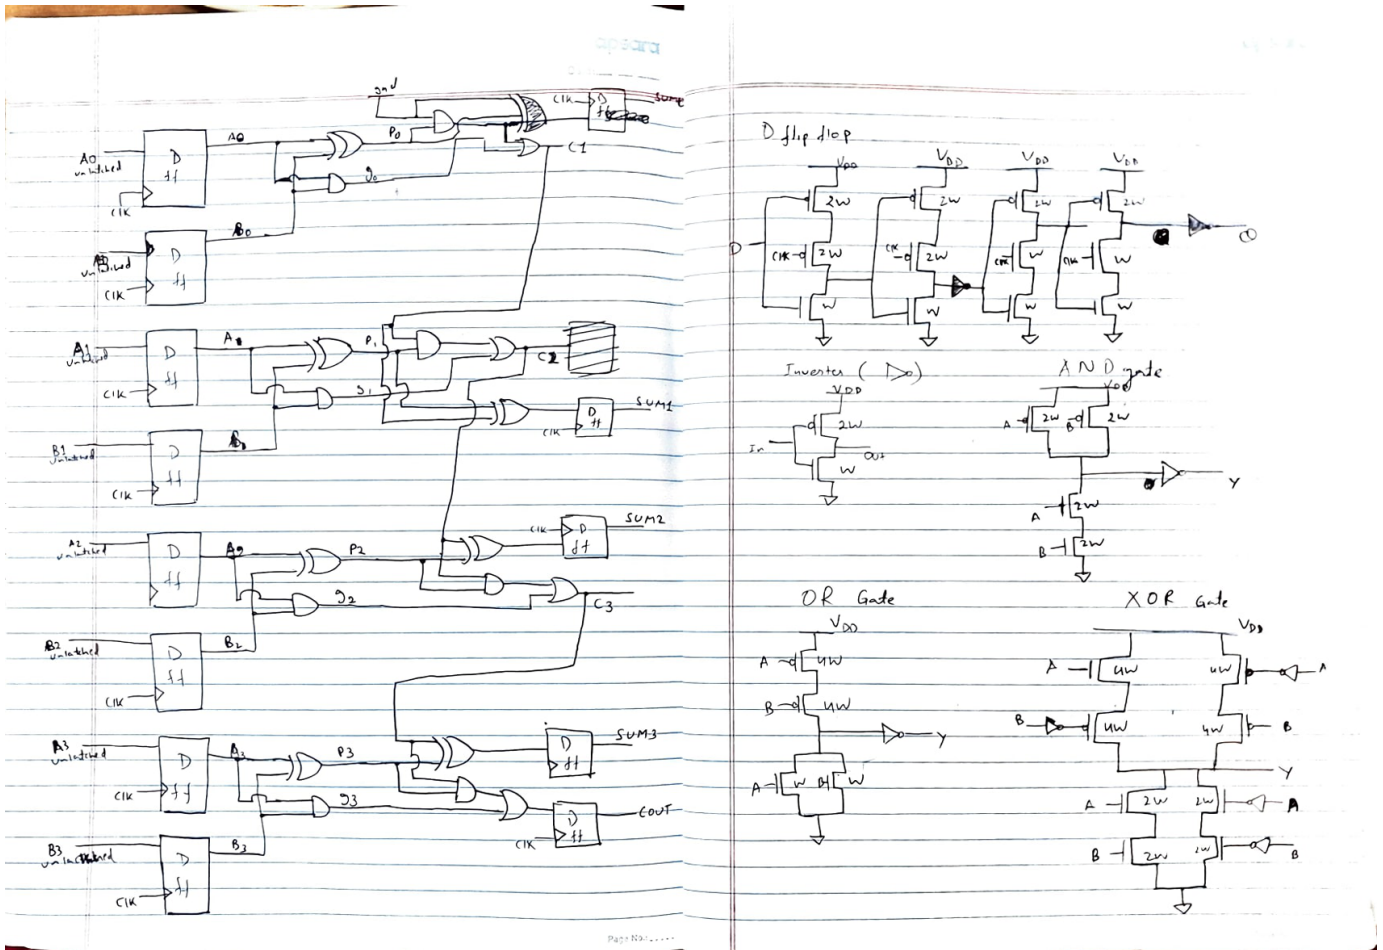 apsara
gnd
CLK D ff
A0 unlatched
D ff
CLK
A0
P0
g0
C1
unlatched
D ff
CLK
B0
A1 unlatched
D ff
CLK
P1
g1
SUM1
D ff
CLK
B1 unlatched
D ff
CLK
A2 unlatched
D ff
P2
g2
CLK D ff
SUM2
C3
B2 unlatched
D ff
CLK
B2
A3 unlatched
D ff
CLK
A3
P3
g3
D ff
SUM3
D ff
CLK
COUT
B3
D ff
CLK
B3
Page No.:
D flip flop
VDD VDD VDD VDD
2W 2W 2W 2W
D
CLK 2W CLK 2W CLK W CLK W
W W W W
Q
Inverter ( )
VDD
2W
In
Out
W
AND gate
VDD
A 2W B 2W
Y
A 2W
B 2W
OR Gate
VDD
A 4W
B 4W
Y
A W B W
XOR Gate
VDD
A 4W 4W A
B 4W 4W B
Y
A 2W 2W A
B 2W 2W B